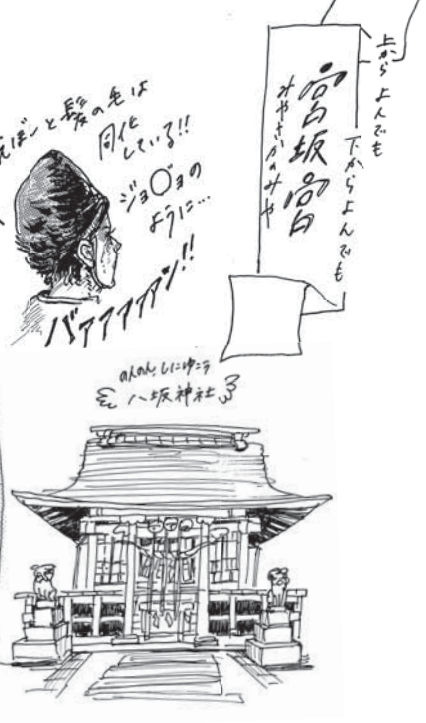 上からよんでも
下からよんでも
宮坂宮
みやさかのみや
えぼしと髪の毛は
同化
している!!
ジョ〇ョの
ように…
バァァァァァン!!
八坂神社